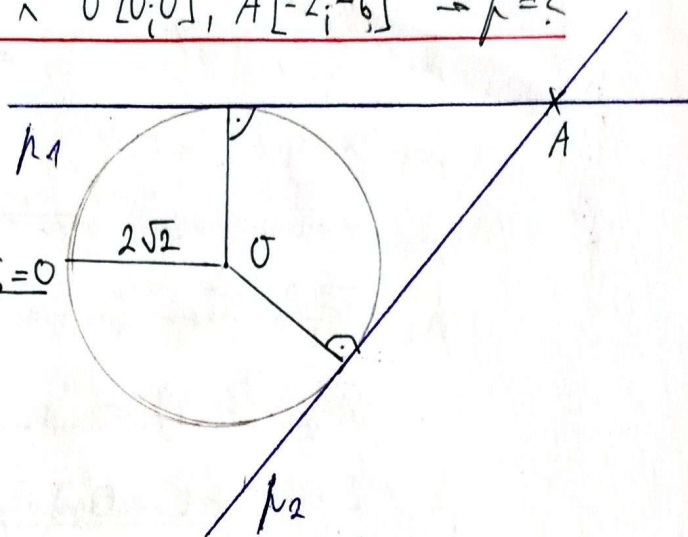 ∧ O[0;0], A[-2;-6] → p = ?
p1
A
2√2
O
=0
p2